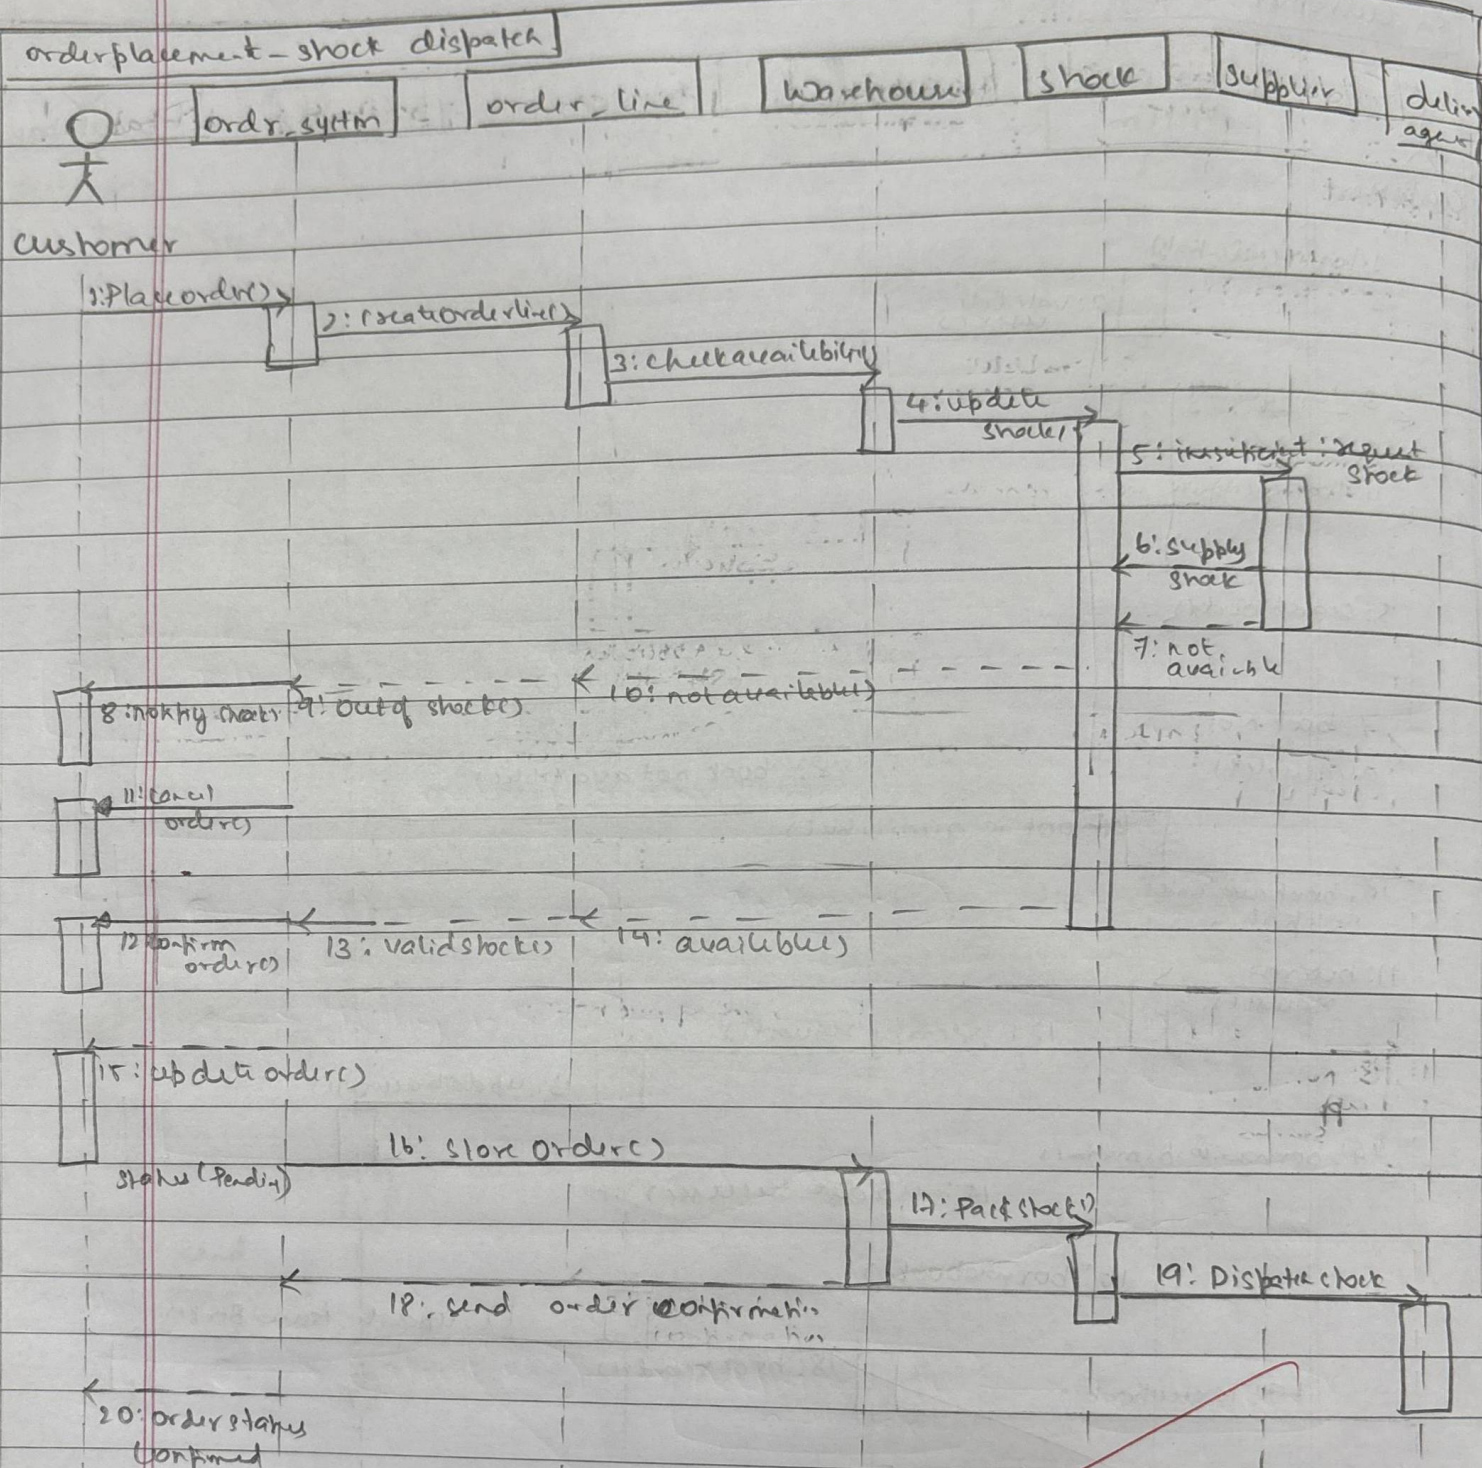 orderplacement - shock dispatch
ordr_systm order_line Warehouse shock supplier
customer
1:Placeordr()
2: createorderline()
3: checkavailibility()
4: update
shock()
5: insuficient: request
shock
6: supply
shock
7: not
available
8: notify
9: out of shock()
10: not available()
11: cancel
order()
12 confirm
order()
13: validstock()
14: available()
15: update order()
status (Pending)
16: store order()
17: Pack stock()
18: send order confirmation
19: Dispatch shock
20: order status
confirmed